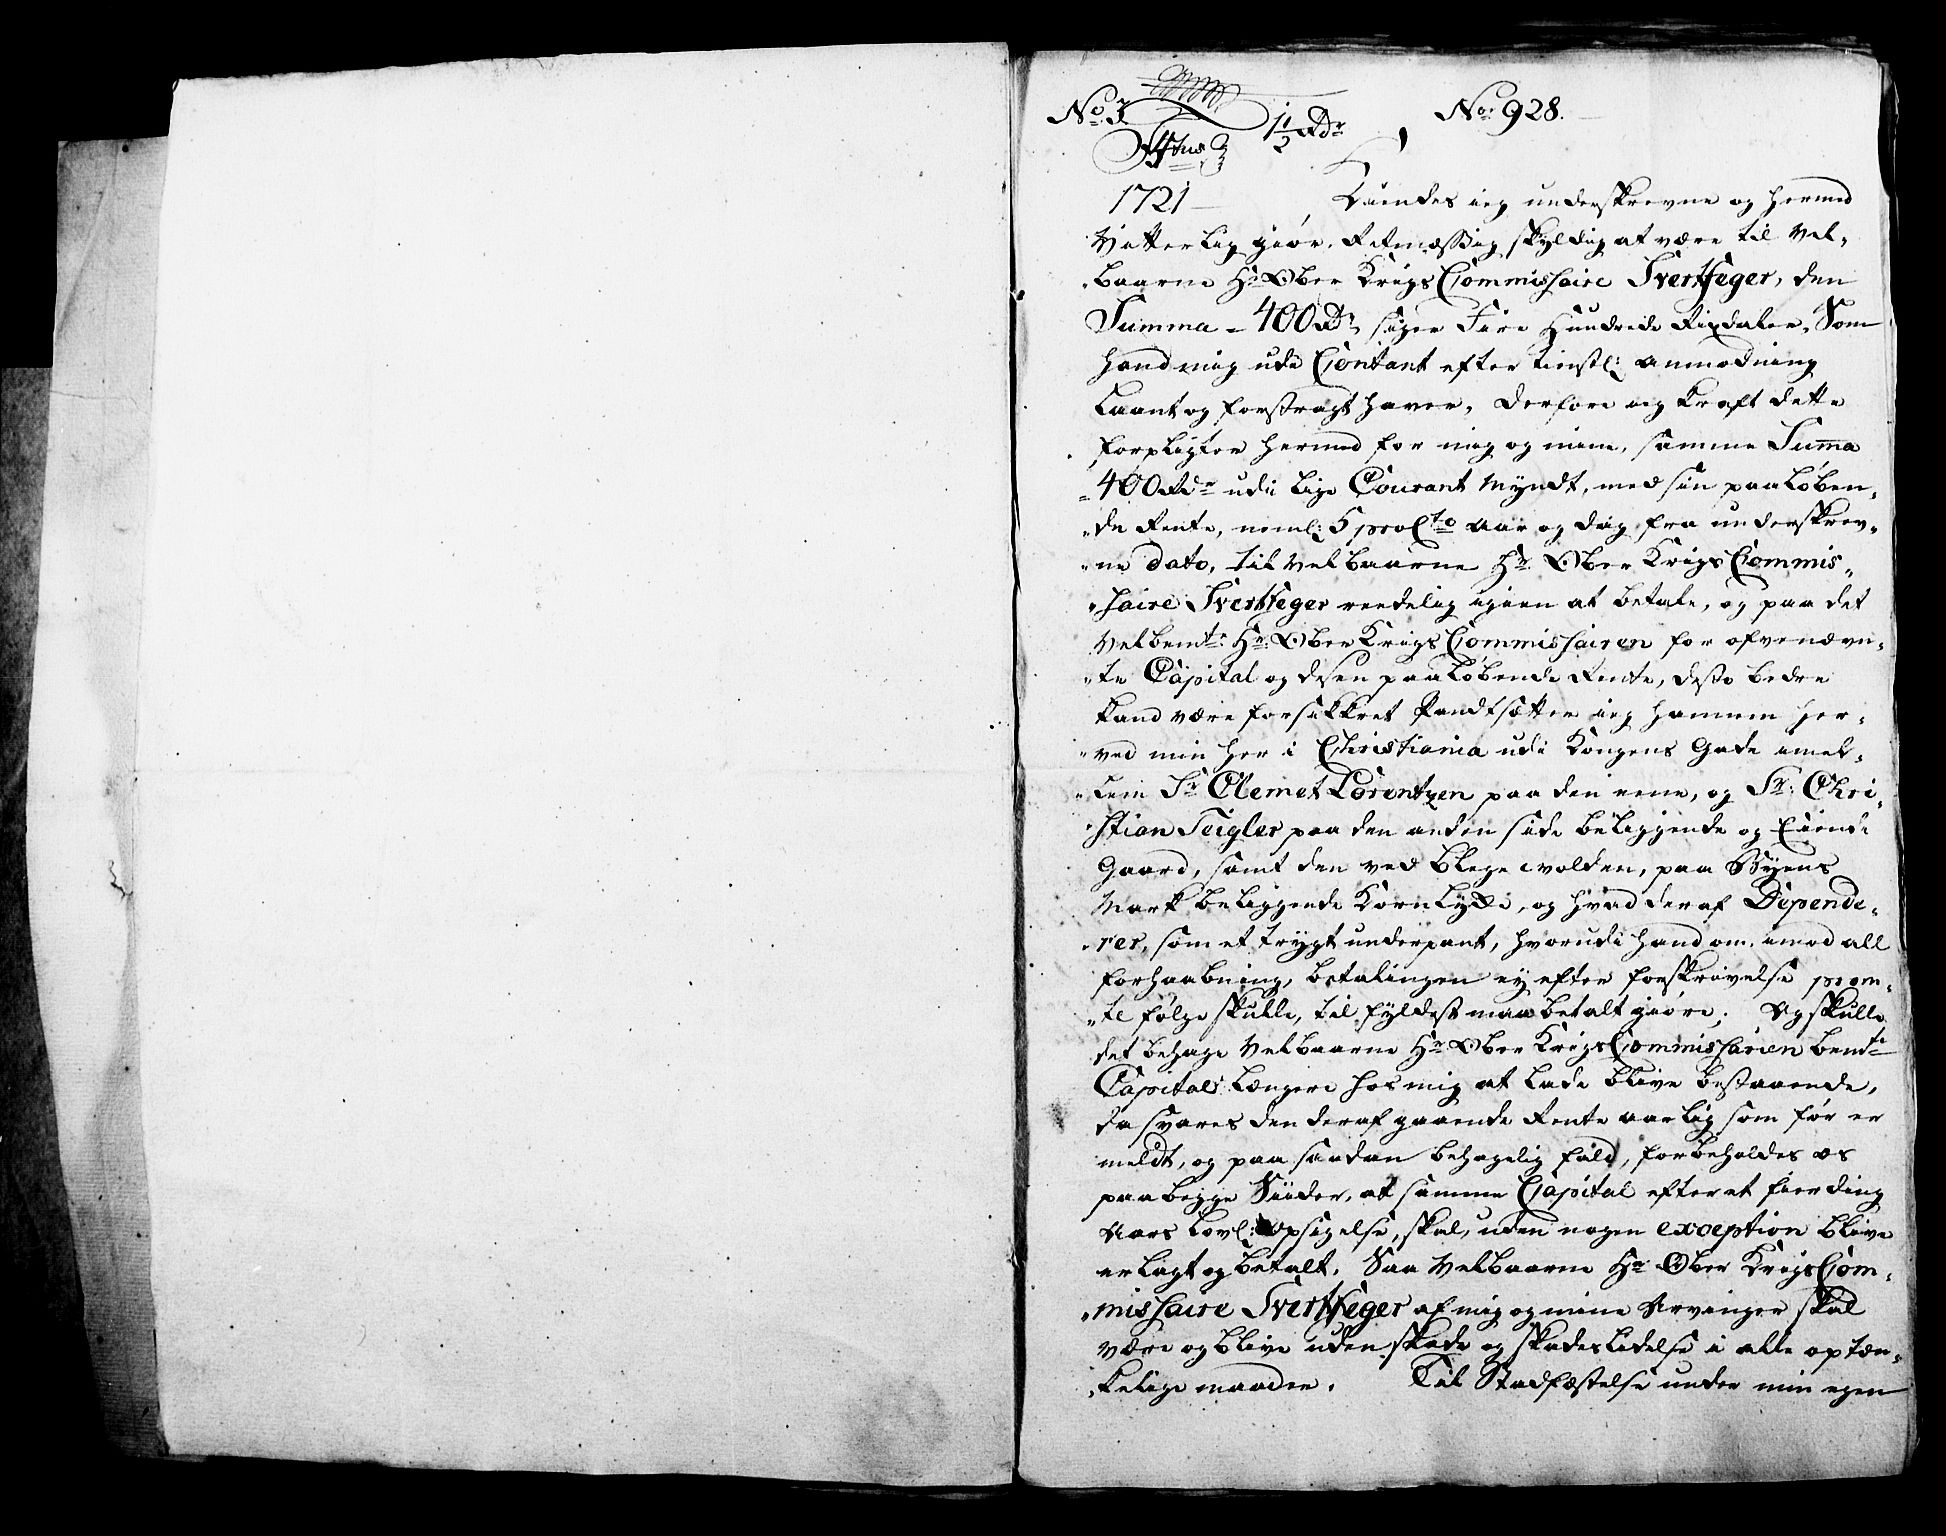 No. 3 1½ Rdr No: 928.
1721
Kiendes ieg underskrevne og hermed
Vitterlig giør, Retmæssig skyldig at være til Vel-
baarne Hr: Ober Krigs Commissaire Svertfeger, den
Summa - 400 Rdr, siger Fire Hundrede Rixdaler, Som
hand mig udi Contant efter tienstl: anmodning
Laant og forstragt haver, derfore ieg Kraft dette
forpligter hermed for mig og mine, samme Summa
400 Rdr udi lige Courant Myndt, med sin paaløben-
de Rente, neml: 5 pro Cto Aar og dag fra underskrev-
ne dato, til Velbaarne Hr Ober Krigs Commis-
saire Svertfeger reedelig igien at betale, og paa det
Velbemte: Hr: Ober Krigs Commissairen for ofvenævn-
te Capital og desen paaløbende Rente, desto bedre
kand være forsikkret Pandtsætter ieg hannem her-
ved min her i Christiania udi Kongens Gade imel-
lem Sr Clemet Lorentzen paa den eene, og Sr: Chri-
stian Teigler paa den anden side beliggende og Eiende
Gaard, samt den ved Blege volden, paa Byens
Mark beliggende Kornlykke, og hvad deraf Dépende-
rer, som et trygt underpant, hvorudi hand om, imod all
forhaabning, betalingen ey efter forskrivelse prom-
te følge skulle, til fyldest maa betalt giøre. Og skulle
det behage Velbaarne Hr Ober Krigs Commissarien bemte
Capital længere hos mig at lade blive bestaaende,
da svares den deraf gaaende Rente aarlig som før er
meldt, og paa saadan behagelig fald, forbeholdes os
paa begge Siider, at samme Capital efter et fierding
Aars Lovl: Opsigelse, skal, uden nogen exception blive
erlagt og betalt. Saa Velbaarne Hr Ober Krigs Com-
missaire Svertfeger af mig og mine Arvinger skal
være og blive uden skade og skadeslidelse i alle optæn-
kelige maader. Til Stadfæstelse under min egen